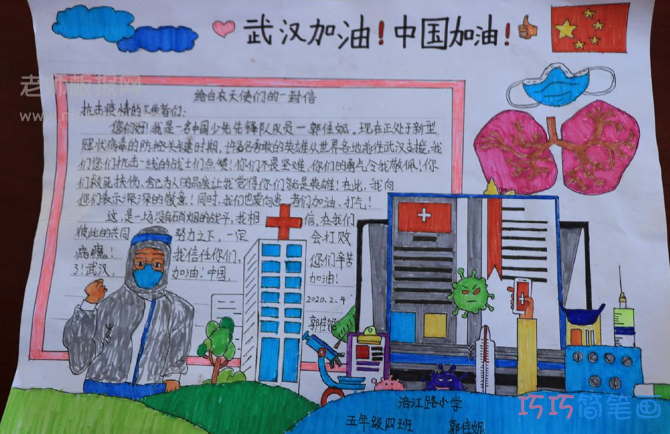 武汉加油!中国加油!
给白衣天使们的一封信
抗击疫情的工作者们:
您们好!我是一名中国少先锋队队员—郭佳妮。现在正处于新型
冠状病毒的防控关键时期,许多名勇敢的英雄从世界各地前往武汉支援,我
们您们抗击一线的战士们点赞!你们不畏坚难,你们的勇气令我敬佩!你
们救死扶伤,舍己为人的品质让我觉得你们就是英雄!在此,我向
您们表示深深的敬意!同时,我们也要向患者们加油、打气!
这,是一场没有硝烟的战争,我相信,在我们
彼此的共同努力之下,一定会打败
病魔!我信任你们,您们辛苦
了!武汉,加油!中国,加油!
2020.2.4
郭佳妮
涪江路小学
五年级四班 郭佳妮
巧巧简笔画